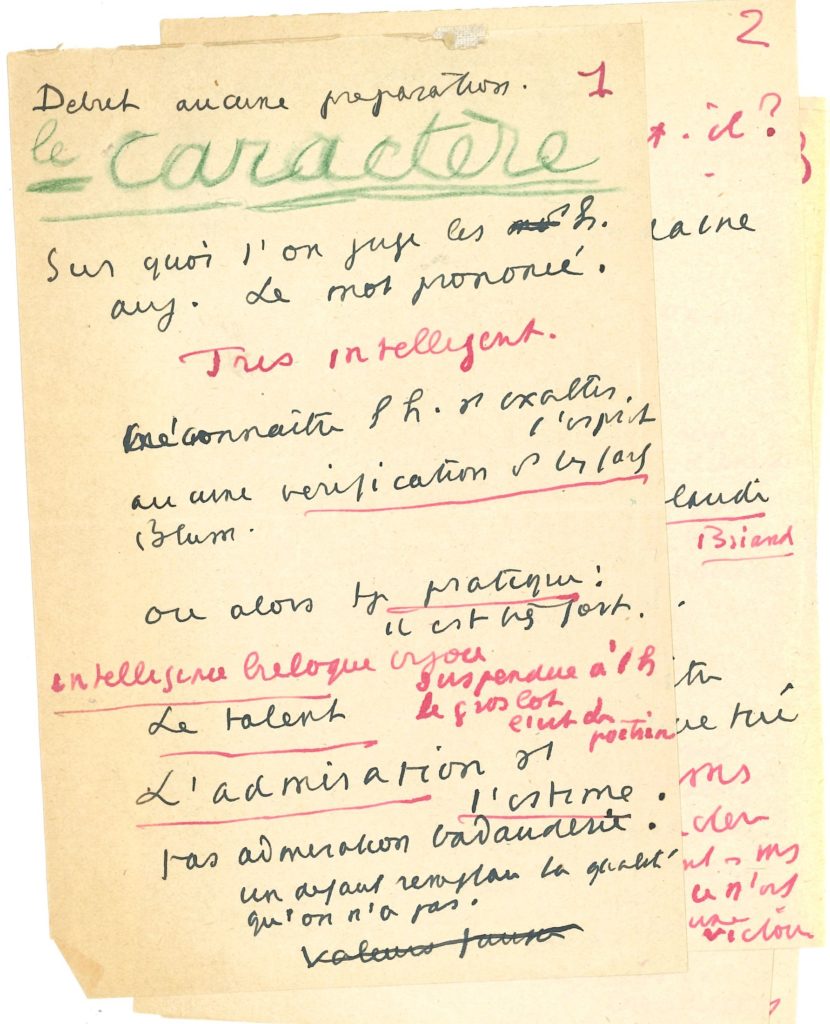 Debut aucune preparation. 1
le caractère
Sur quoi l'on juge les h.
auj. Le mot prononcé.
Tres intelligent.
méconnaitre l h. et exalter
l'esprit
aucune verification et les
Blum.
ou alors pratique:
il est très fort.
intelligence breloque bijou
suspendue à l h
le gros lot
Le talent
L'admiration et
l'estime.
pas admiration badauderie.
un defaut remplace la qualité
qu'on n'a pas.
valeurs fausses
2
t-il?
3
laine
laudi
Briand
ue tué
ms
ms
ce n'est
une
victoire